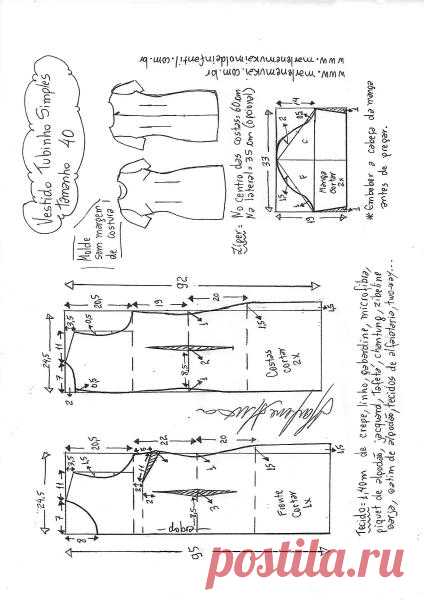 Vestido Tubinho Simples
Tamanho 40
www.marlenemukai.com.br
www.marlenemukaimoldeinfantil.com.br
Molde
sem margem
de costura
Zíper= No centro das costas= 60cm
Na lateral= 35 cm (opcional)
14
33
19
1,5
2
1,5
1
C
F
Manga
cortar
2x
* Embeber a cabeça da manga
antes de pregar.
92
20,5
19
20
24,5
7
11
3,5
0,5
2
0,5
8,5
2
1
1,5
1,5
Costas
cortar
2x
95
20,5
22
20
24,5
7
11
3,5
1,5
8
2
3
1
8,5
1,5
1,5
dobra
Frente
Cortar
1x
Tecido= 1,40m de crepe, linho, gabardine, microfibra,
piquet de algodão, jacquard, tafetá, chantung, zibeline
sarja, cetim de algodão, tecidos de alfaiataria, two-way...
postila.ru